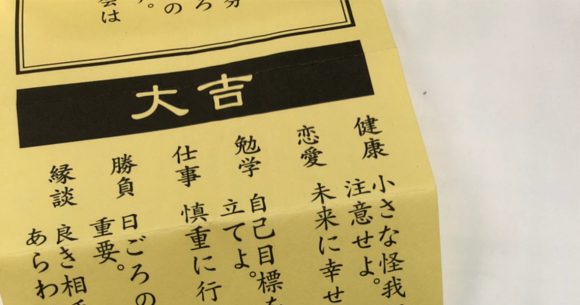 ろ
の
。
は
大吉
健康 小さな怪我
注意せよ。
恋愛 未来に幸せ
勉学 自己目標を
立てよ。
仕事 慎重に行
勝負 日ごろの
重要。
縁談 良き相
あらわ